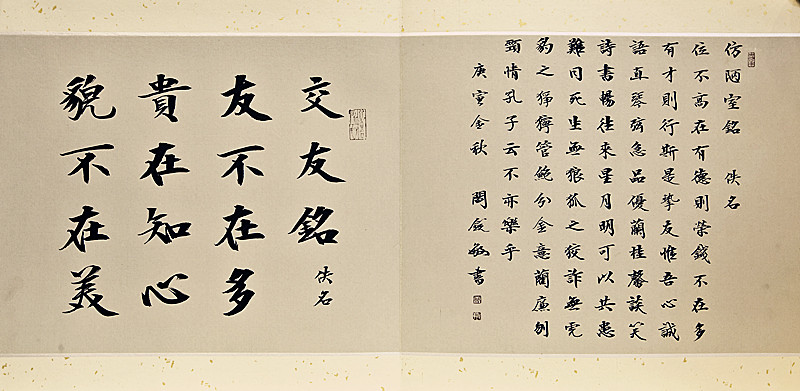 仿陋室銘 佚名
位不高在有德則榮錢不在多
有才則行斯是摯友惟吾心誠
語直琴弦急品優蘭桂馨談笑
詩書暢往來星月明可以共患
難同死生無狼狐之狡詐無虎
豹之猙獰管鮑分金意藺廉刎
頸情孔子云不亦樂乎
庚寅金秋 敏書
交友銘 佚名
友不在多
貴在知心
貌不在美